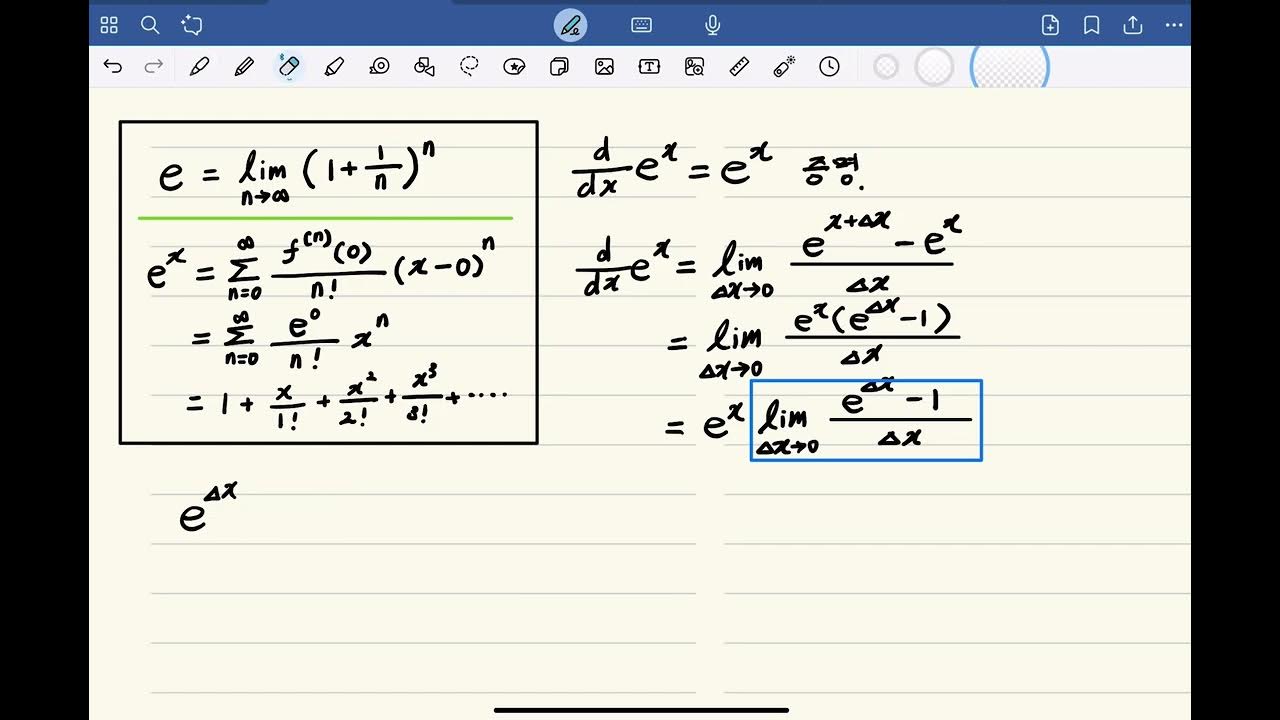 e = lim n→∞ (1 + 1/n)^n
e^x = ∑ n=0 ∞ f^(n)(0)/n! (x-0)^n
= ∑ n=0 ∞ e^0/n! x^n
= 1 + x/1! + x^2/2! + x^3/3! + ····
e^Δx
d/dx e^x = e^x 증명.
d/dx e^x = lim Δx→0 (e^(x+Δx) - e^x)/Δx
= lim Δx→0 e^x(e^Δx - 1)/Δx
= e^x lim Δx→0 (e^Δx - 1)/Δx